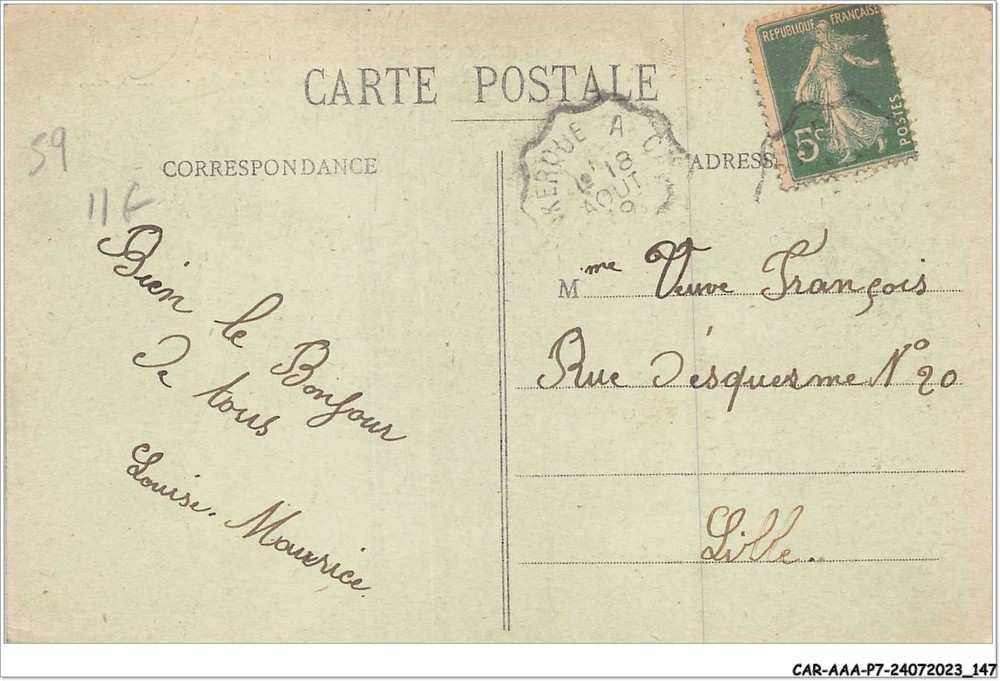 CARTE POSTALE
RÉPUBLIQUE FRANÇAISE
5c
POSTES
KERQUE A C
18
AOUT
59
11 F
CORRESPONDANCE
ADRESS
Bien le Bonjour
De tous
Louise. Maurice.
Mme Veuve François
Rue Désquerme N° 20
Lille.
CAR-AAA-P7-24072023_147